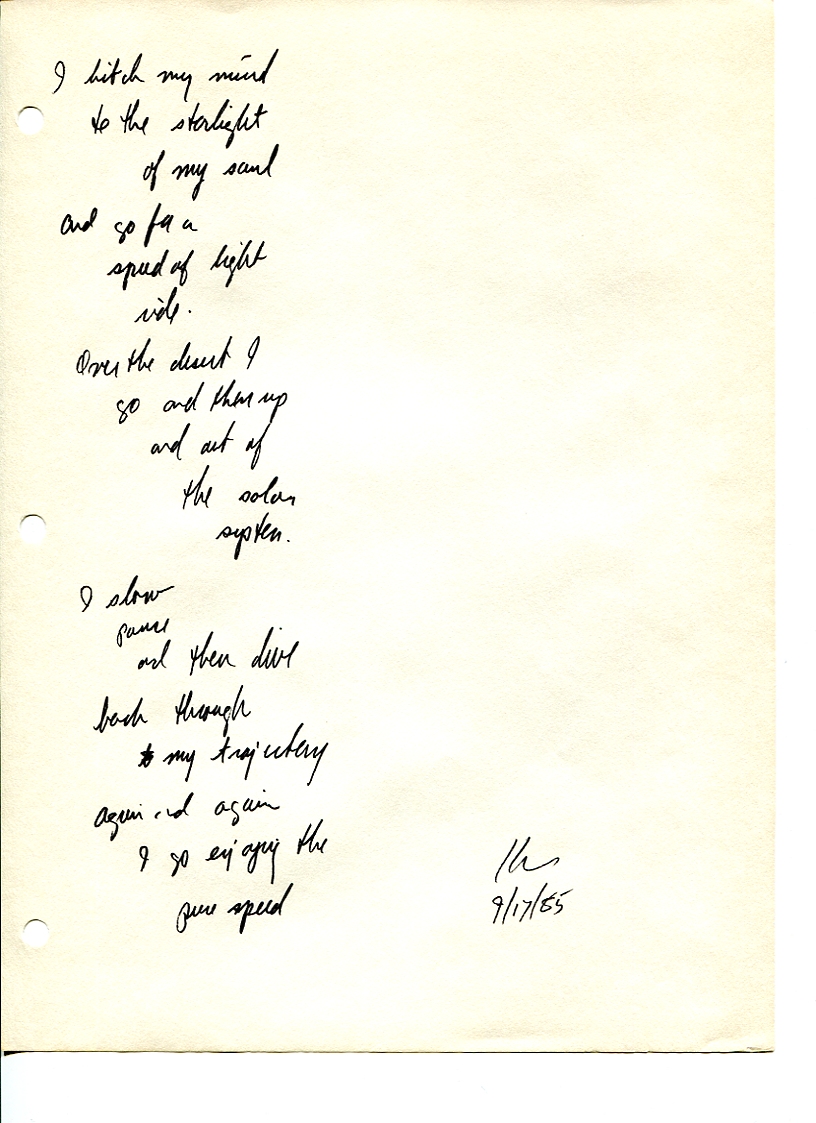 I hitch my mind
to the starlight
of my soul
and go for a
speed of light
ride.
Over the desert I
go and then up
and out of
the solar
system.
I slow
pause
and then dive
back through
my trajectory
again and again
I go enjoying the
pure speed
9/17/85